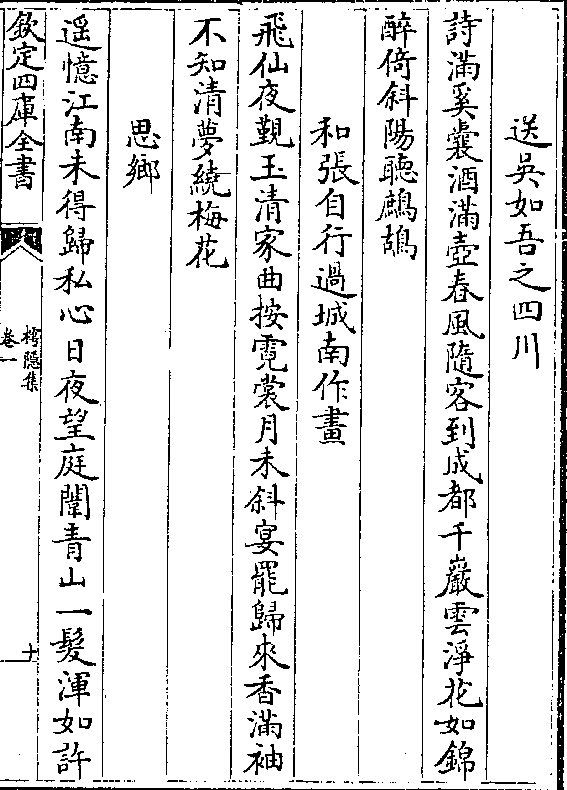 送吳如吾之四川
詩滿奚囊酒滿壺春風隨客到成都千巖雲淨花如錦
醉倚斜陽聽鷓鴣
和張自行過城南作畫
飛仙夜覲玉清家曲按霓裳月未斜宴罷歸來香滿袖
不知清夢繞梅花
思鄉
遥憶江南未得歸私心日夜望庭闈青山一髮渾如許
欽定四庫全書
樗隱集
卷一
十